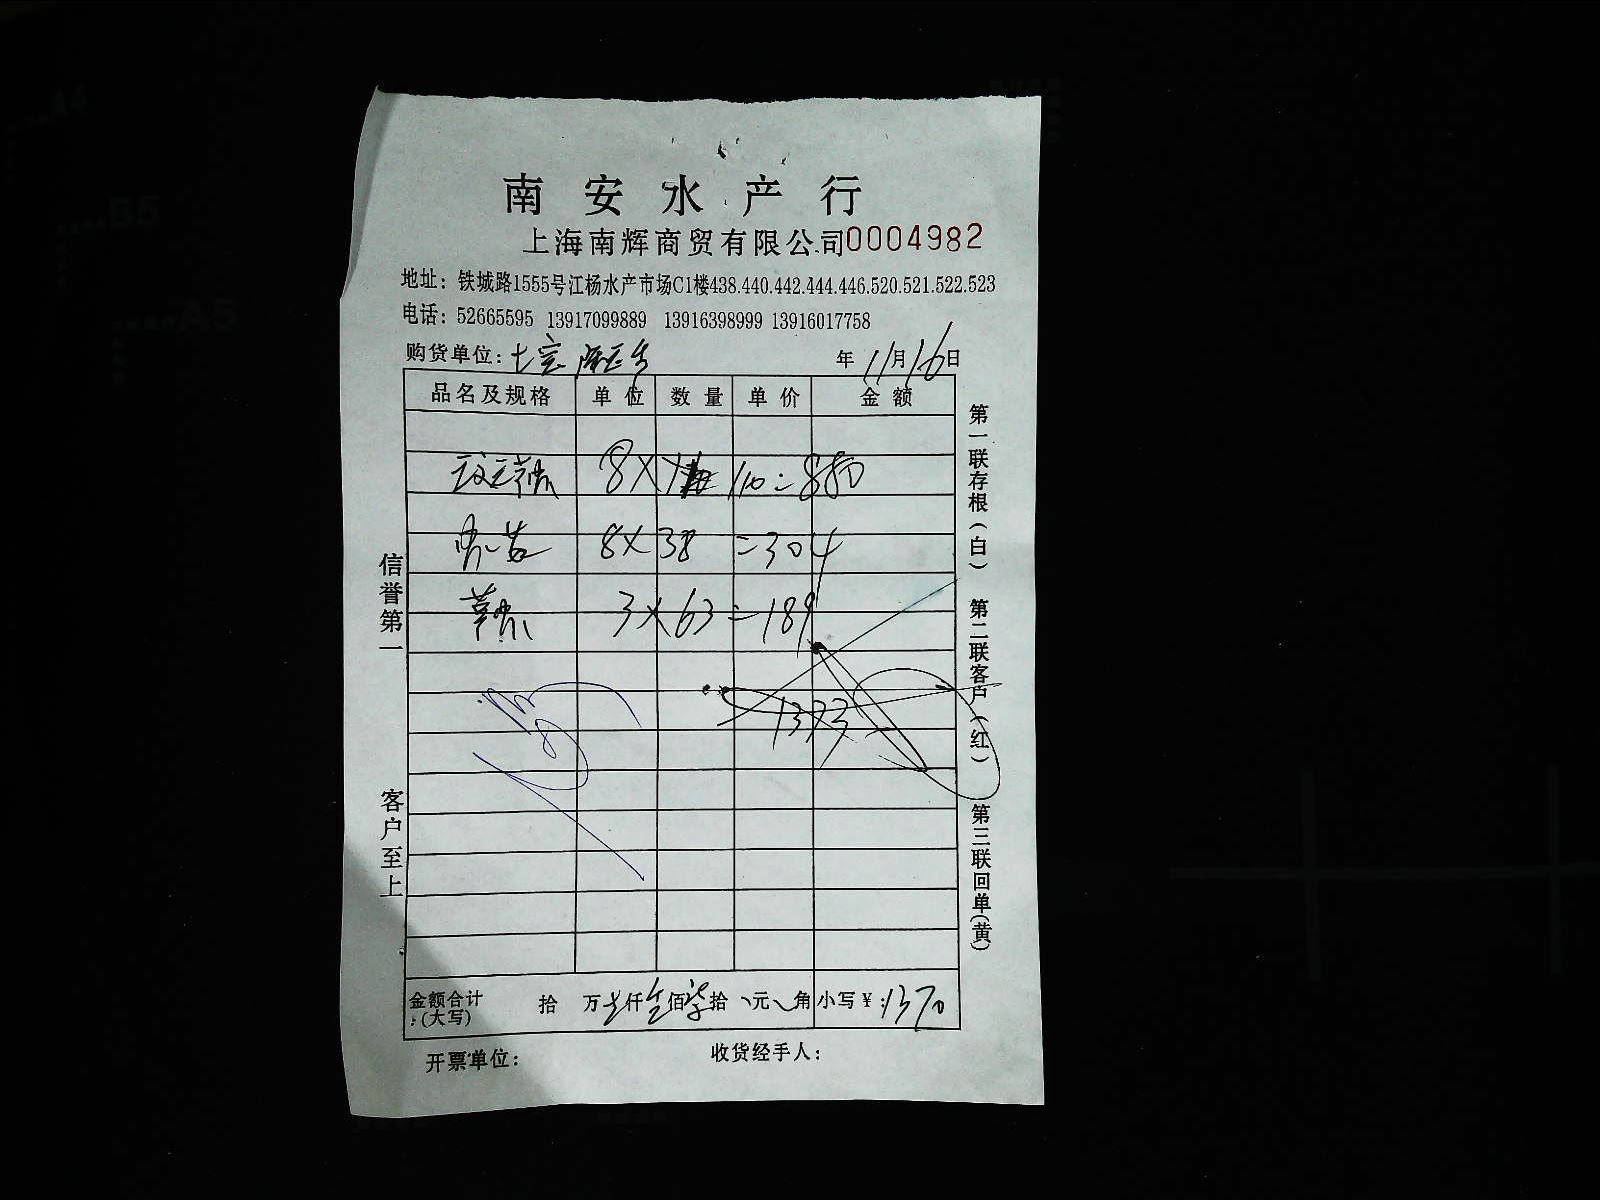 南安水产行
上海南辉商贸有限公司0004982
地址：铁城路1555号江杨水产市场C1楼438.440.442.444.446.520.521.522.523
电话：52665595 13917099889 13916398999 13916017758
购货单位：七宝 年11月16日
品名及规格 单位 数量 单价 金额
8× 110=880
8×38 =304
3×63=189
1373
金额合计 拾 万 仟 佰 拾 元 角 小写￥：1370
：(大写)
开票单位： 收货经手人：
信誉第一
客户至上
第一联存根（白）
第二联客户（红）
第三联回单（黄）